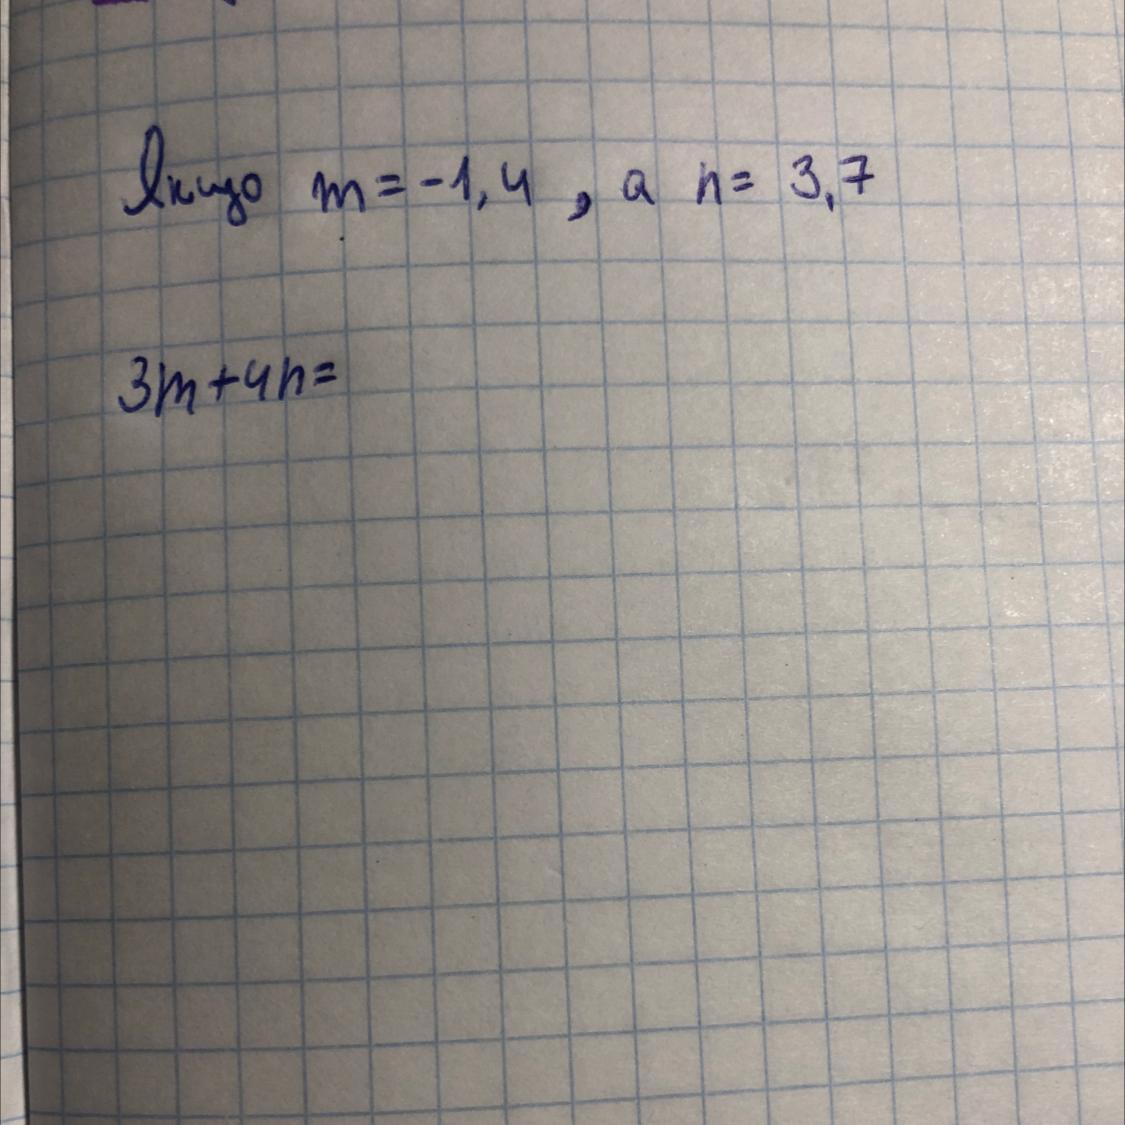 Якщо m = -1,4 , а n = 3,7
3m+4n=